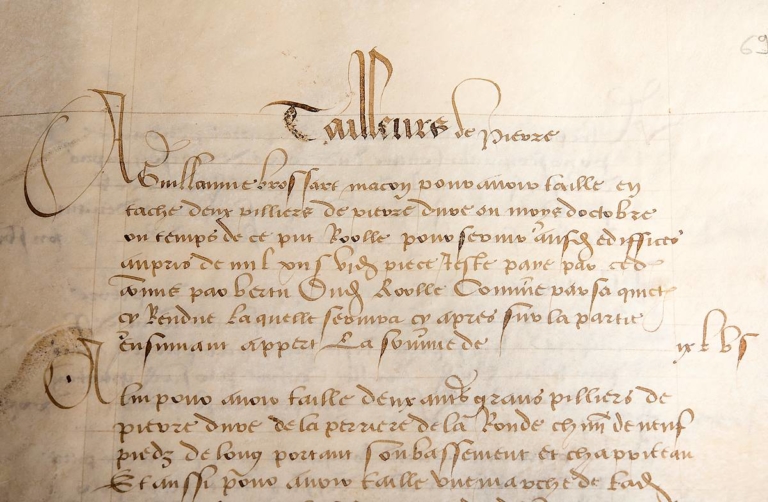 69
Tailleurs de pierre
A Guillaume brossart macon pour avoir taille en
tache deux pilliers de pierre dure ou moys doctobre
ou temps de ce pnt Roolle pour servir ausd ediffices
au pris de piece paye par
par Roolle Comme par sa quict
cy Rendue Laquelle servira cy apres sur la partie
ensuivant appert La somme de
A lui pour avoir taille deux aut's grans pilliers de
pierre dure de la perriere de la Ronde de neuf
piedz de long portant soubassement et chappiteau
Et aussi pour avoir taille une marche de